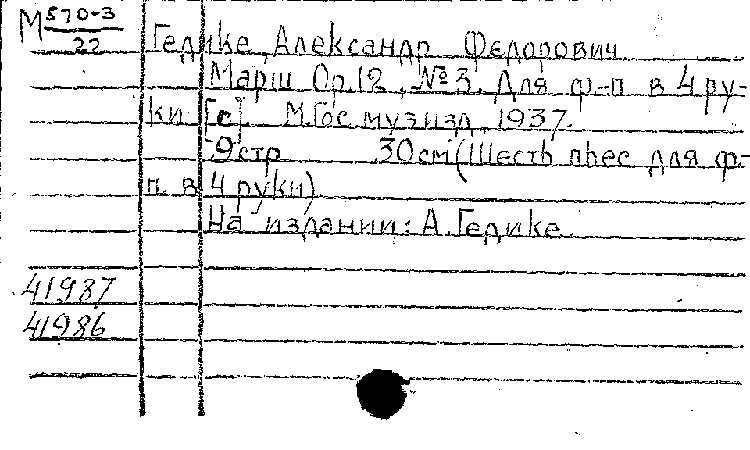 М 570-3
22
Гедике, Александр Федорович
Марш Op.12, №3. Для ф-п в 4 ру-
ки [c]. М.Гос.музизд, 1937.
9стр 30см(Шесть пьес для ф.-
п. в 4 руки)
На издании: А.Гедике.
41987
41986